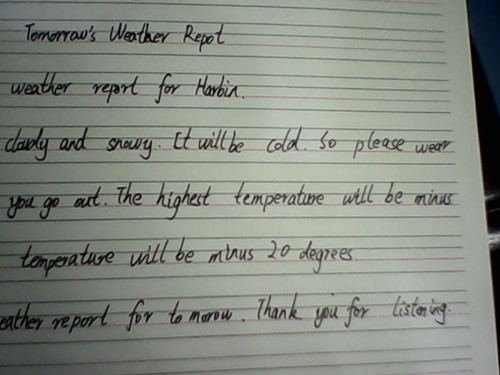 Tomorrow's Weather Repot
weather report for Harbin.
cloudy and snowy. It will be cold. So please wear
you go out. The highest temperature will be minus
temperature will be minus 20 degrees.
eather report for to morow. Thank you for listening.